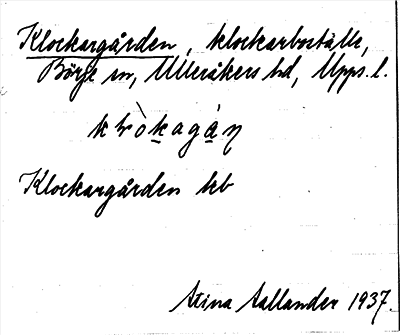 Klockargården, klockarboställe,
Börje sn, Ulleråkers hd, Upps. l.
Klockargården kb
Stina Aallander 1937.